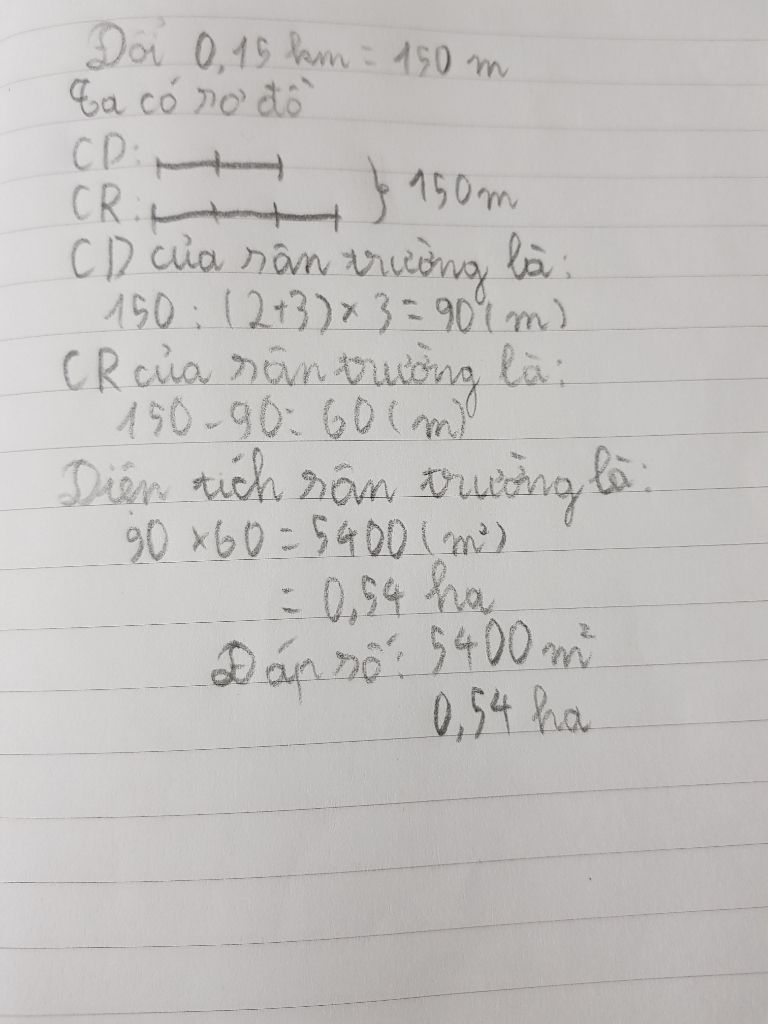 Đổi 0,15 km = 150 m
Ta có sơ đồ
CD:
CR: } 150 m
CD của sân trường là:
150 : (2+3) × 3 = 90 (m)
CR của sân trường là:
150 - 90 = 60 (m)
Diện tích sân trường là:
90 × 60 = 5400 (m²)
= 0,54 ha
Đáp số: 5400 m²
0,54 ha